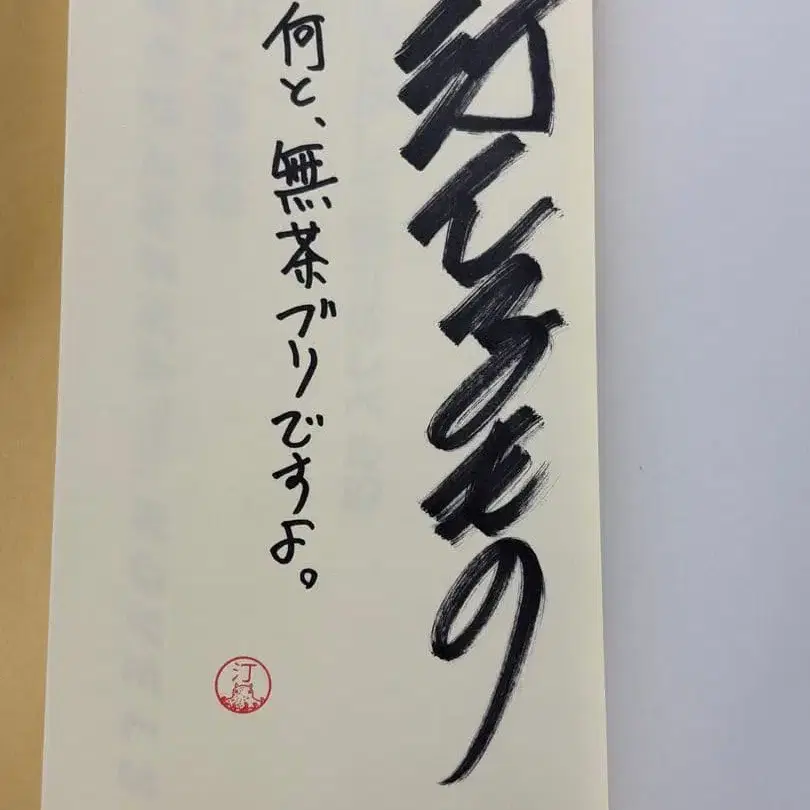 汀こるもの
何と、無茶ブリですよ。
汀